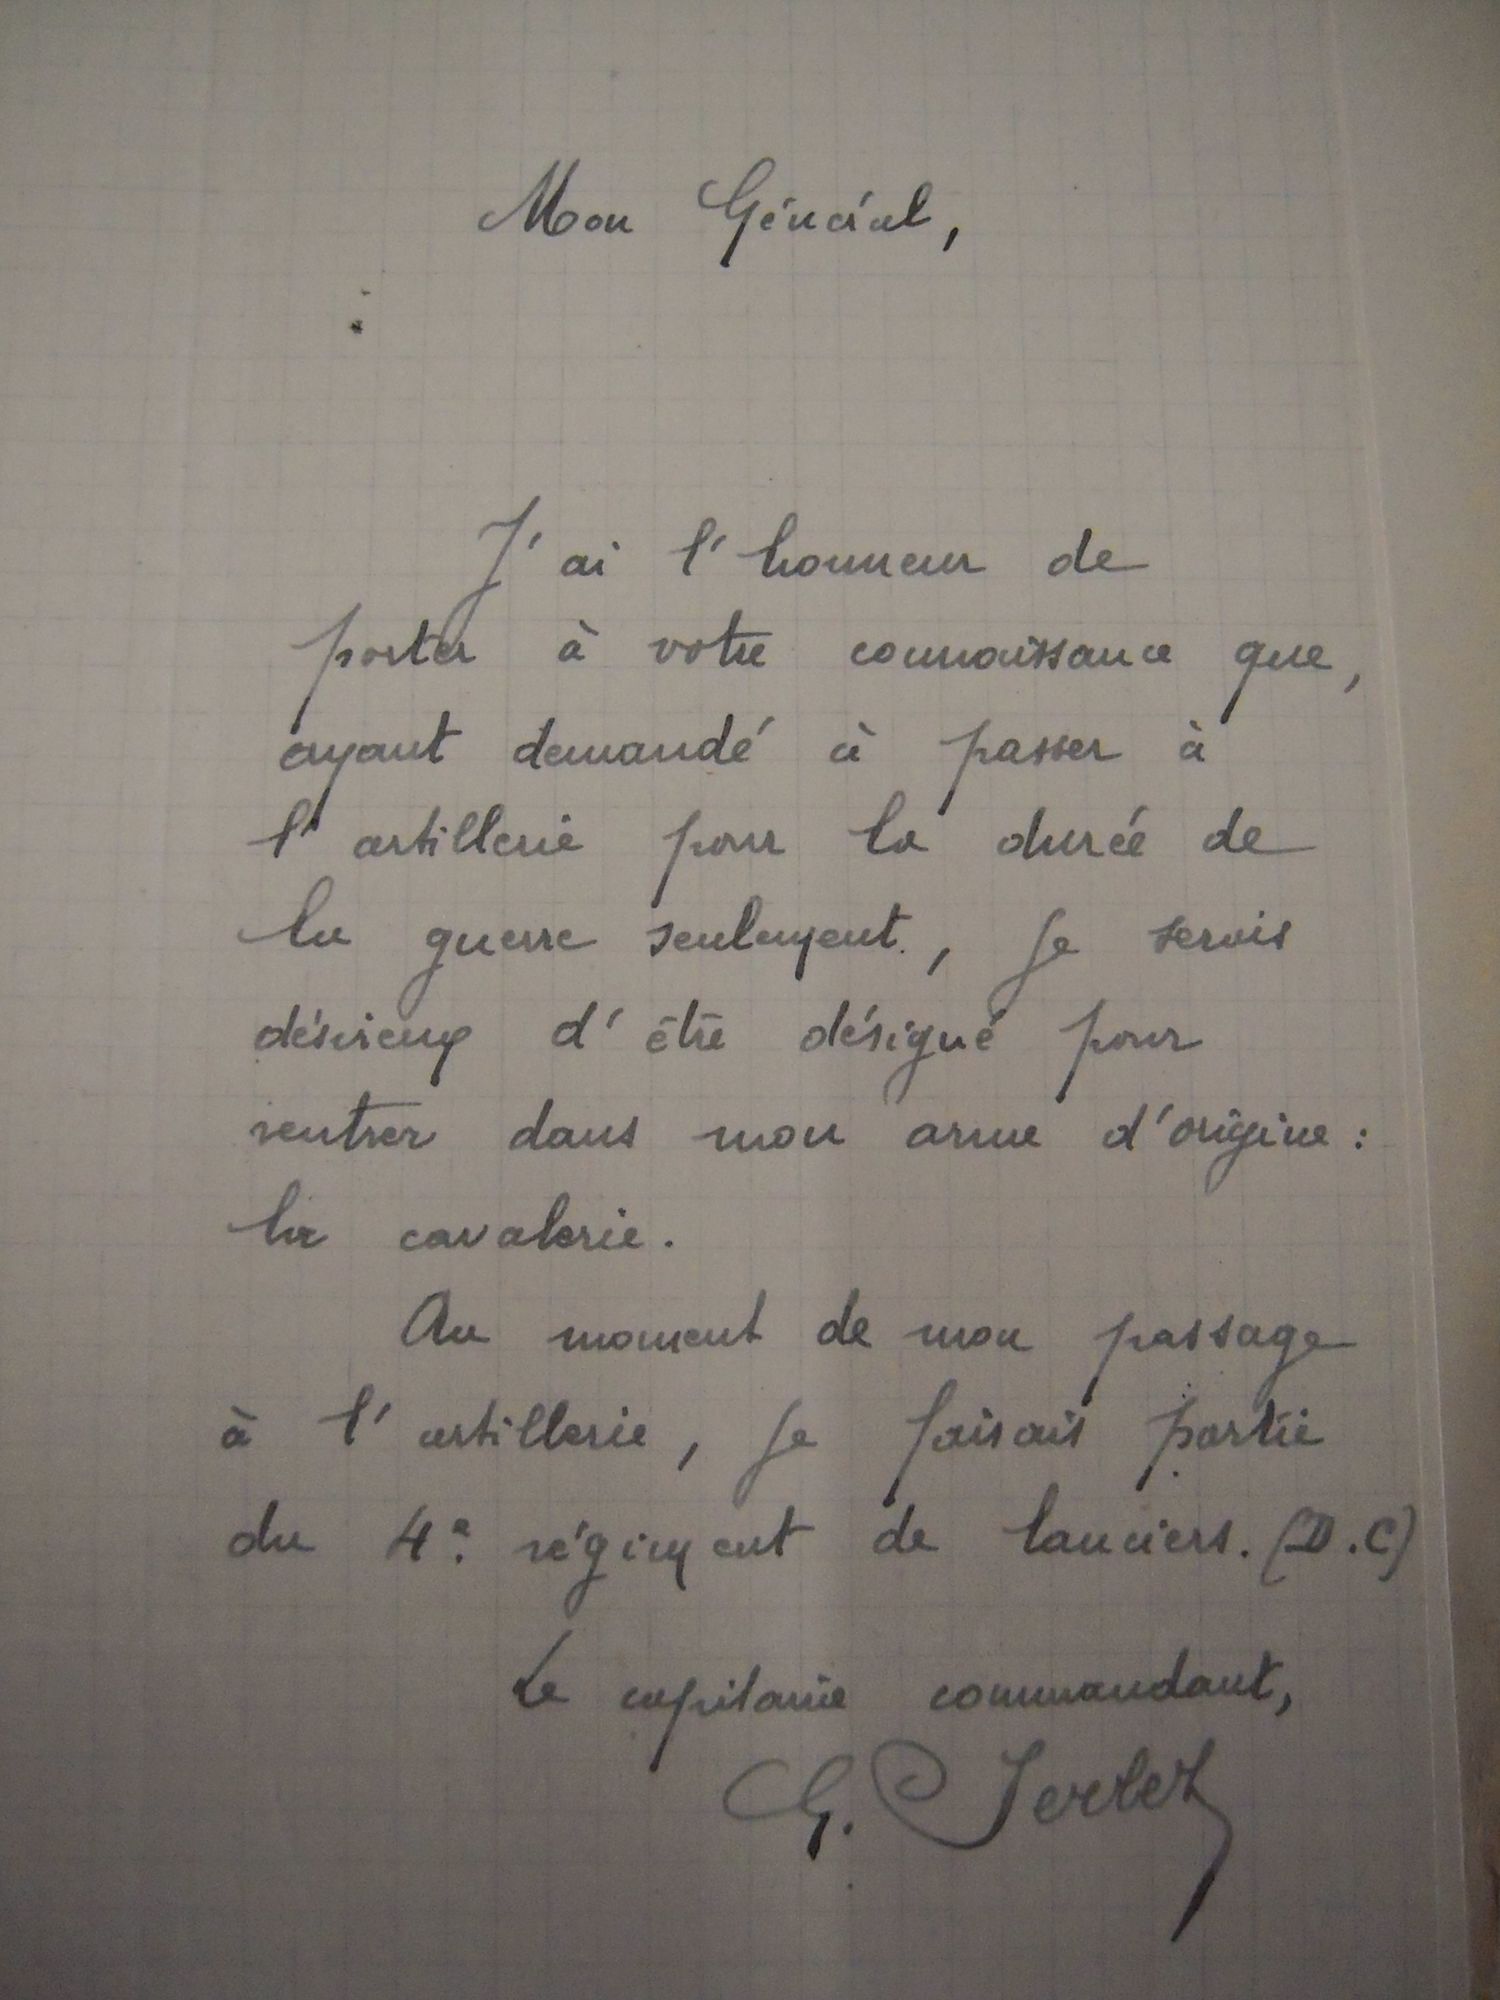 Mon Général,
J'ai l'honneur de
porter à votre connaissance que,
ayant demandé à passer à
l'artillerie pour la durée de
la guerre seulement, je serais
désireux d'être désigné pour
rentrer dans mon arme d'origine :
la cavalerie.
Au moment de mon passage
à l'artillerie, je faisais partie
du 4e. régiment de lanciers. (D.C)
Le capitaine commandant,
G.